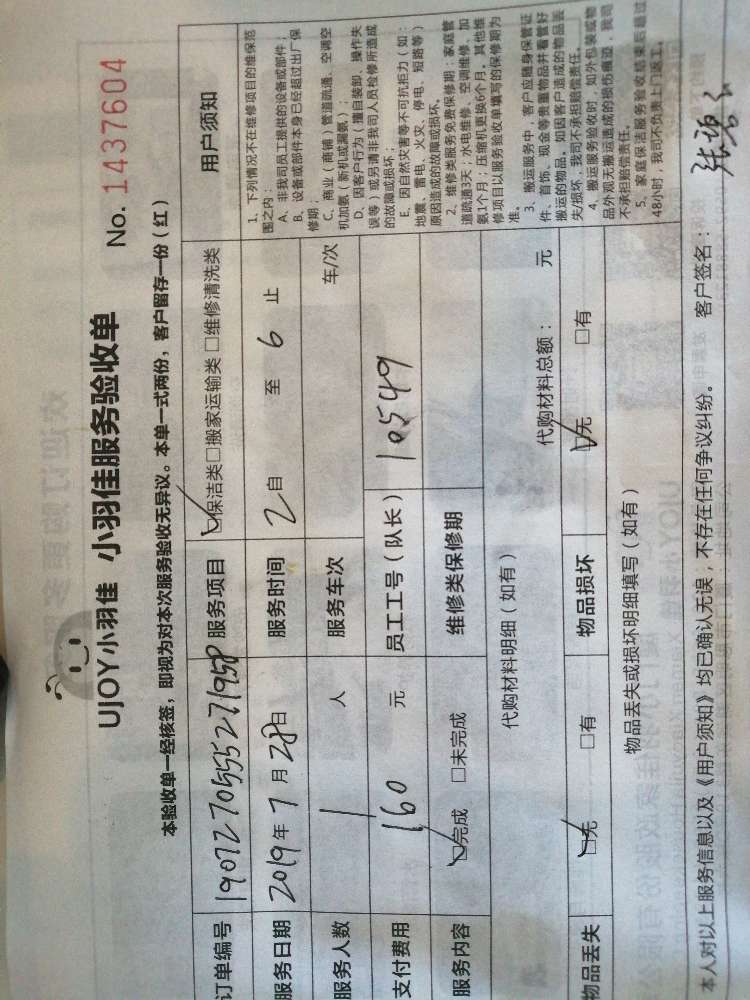 UJOY小羽佳 小羽佳服务验收单
No. 1437604
本验收单一经核签，即视为对本次服务验收无异议。本单一式两份，客户留存一份（红）
订单编号 1907270555271958 服务项目 ☑保洁类□搬家运输类 □维修清洗类
服务日期 2019年7月28日 服务时间 2自 至 6 止
服务人数 1 人 服务车次 车/次
支付费用 160 元 员工工号（队长） 10549
服务内容 ☑完成 □未完成 维修类保修期
代购材料明细（如有） 代购材料总额： 元
物品丢失 ☑无 □有 物品损坏 ☑无 □有
物品丢失或损坏明细填写（如有）
用户须知
1、下列情况不在维修项目的维保范
围之内：
A、非我司员工提供的设备或部件；
B、设备或部件本身已经超过出厂保
修期；
C、商业（商铺）管道疏通、空调空
机加氨（新机或漏氨）；
D、因客户行为（擅自装卸、操作失
误等）或另请非我司人员检修所造成
的故障或损坏；
E、因自然灾害等不可抗拒力（如：
地震、雷电、火灾、停电、短路等）
原因造成的故障或损坏。
2、维修类服务免费保修期：家庭管
道疏通3天；水电维修、空调维修、加
氨1个月；压缩机更换6个月。其他维
修项目以服务验收单填写的保修期为
准。
3、搬运服务中，客户应随身保管证
件、首饰、现金等贵重物品并看管好
搬运的物品。如因客户造成的物品丢
失/损坏，我司不承担赔偿责任。
4、搬运服务验收时，如外包装或物
品外观无搬运造成的损伤痕迹，我司
不承担赔偿责任。
5、家庭保洁服务验收结束后超过
48小时，我司不负责上门返工。
本人对以上服务信息以及《用户须知》均已确认无误，不存在任何争议纠纷。 客户签名：张